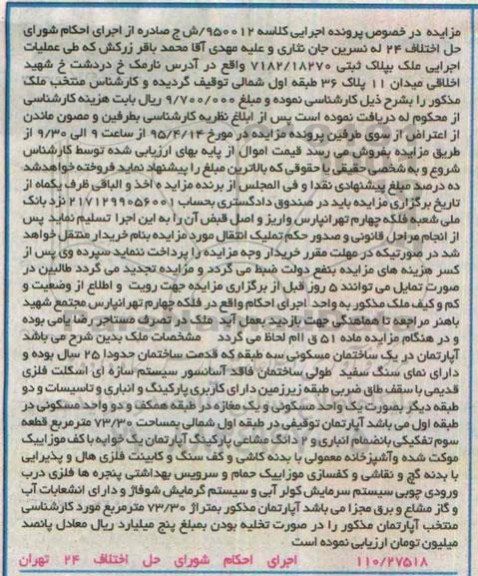 مزایده در خصوص پرونده اجرایی کلاسه ۹۵۰۰۱۲/ش ج صادره از اجرای احکام شورای
حل اختلاف ۲۴ له نسرین جان نثاری و علیه مهدی آقا محمد باقر زرکش که طی عملیات
اجرایی ملک بپلاک ثبتی ۷۱۸۲/۱۸۲۷۰ واقع در آدرس نارمک خ دردشت خ شهید
اخلاقی میدان ۱۱ پلاک ۳۶ طبقه اول شمالی توقیف گردیده و کارشناس منتخب ملک
مذکور را بشرح ذیل کارشناسی نموده و مبلغ ۹/۷۰۰/۰۰۰ ریال بابت هزینه کارشناسی
از محکوم له دریافت نموده است پس از ابلاغ نظریه کارشناسی بطرفین و مصون ماندن
از اعتراض از سوی طرفین پرونده مزایده در مورخ ۹۵/۴/۱۴ از ساعت ۹ الی ۹/۳۰ از
طریق مزایده بفروش می رسد قیمت اموال از پایه بهای ارزیابی شده توسط کارشناس
شروع و به شخصی حقیقی یا حقوقی که بالاترین مبلغ را پیشنهاد نماید فروخته خواهدشد
ده درصد مبلغ پیشنهادی نقدا و فی المجلس از برنده مزایده اخذ و الباقی ظرف یکماه از
تاریخ برگزاری مزایده باید در صندوق دادگستری بحساب ۲۱۷۱۲۹۹۰۵۶۰۰۱ نزد بانک
ملی شعبه فلکه چهارم تهرانپارس واریز و اصل قبض آن را به این اجرا تسلیم نماید پس
از انجام مراحل قانونی و صدور حکم تملیک انتقال مورد مزایده بنام خریدار منتقل خواهد
شد در صورتیکه در مهلت مقرر خریدار وجه مزایده را پرداخت ننماید سپرده وی پس از
کسر هزینه های مزایده بنفع دولت ضبط می گردد و مزایده تجدید می گردد طالبین در
صورت تمایل می توانند ۵ روز قبل از برگزاری مزایده جهت رویت و اطلاع از وضعیت و
کم و کیف ملک مذکور به واحد اجرای احکام واقع در فلکه چهارم تهرانپارس مجتمع شهید
باهنر مراجعه با هماهنگی جهت بازدید بعمل آید ملک در تصرف مستاجر رضا بامی بوده
و در هنگام مزایده ماده ۵۱ ق اام لحاظ می گردد مشخصات ملک بدین شرح می باشد
آپارتمان در یک ساختمان مسکونی سه طبقه که قدمت ساختمان حدودا ۲۵ سال بوده و
دارای نمای سنگ سفید طولی ساختمان فاقد آسانسور سیستم سازه ای اسکلت فلزی
قدیمی با سقف طاق ضربی طبقه زیرزمین دارای کاربری پارکینگ و انباری و تاسیسات و دو
طبقه دیگر بصورت یک واحد مسکونی و یک مغازه در طبقه همکف و دو واحد مسکونی در
طبقه اول می باشد آپارتمان توقیفی در طبقه اول شمالی بمساحت ۷۳/۳۰ مترمربع قطعه
سوم تفکیکی بانضمام انباری و ۲ دانگ مشاعی پارکینگ آپارتمان یک خوابه با کف موزاییک
موکت شده وآشپزخانه معمولی با بدنه کاشی و کف سنگ و کابینت فلزی هال و پذیرایی
با بدنه گچ و نقاشی و کفسازی موزاییک حمام و سرویس بهداشتی پنجره ها فلزی درب
ورودی چوبی سیستم سرمایش کولر آبی و سیستم گرمایش شوفاژ و دارای انشعابات آب
و گاز مشاع و برق مجزا می باشد آپارتمان مذکور بمتراژ ۷۳/۳۰ مترمربع مورد کارشناسی
منتخب آپارتمان مذکور را در صورت تخلیه بودن بمبلغ پنج میلیارد ریال معادل پانصد
میلیون تومان ارزیابی نموده است
۱۱۰/۲۷۵۱۸ اجرای احکام شورای حل اختلاف ۲۴ تهران